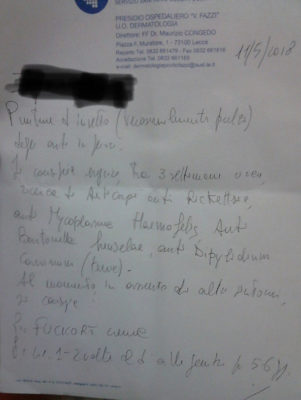 PRESIDIO OSPEDALIERO "V. FAZZI"
U.O. DERMATOLOGIA
Direttore: FF Dr. Maurizio CONGEDO
Piazza F. Muratore, 1 - 73100 Lecce
Reparto Tel. 0832 661479 - Fax 0832 661616
Accettazione Tel. 0832 661165
11/5/2018
Punture d'insetto (verosimilmente pulce)
Si consiglia eseguire, tra 3 settimane circa,
ricerca di Anticorpi anti Rickettsie,
anti Mycoplasma Haemofelis, Anti
Bartonella henselae, anti Dipylidium
Caninum (tenie).
Al momento, in assenza di altri sintomi,
si consiglia
FUCICORT crema
1-2 volte al dì